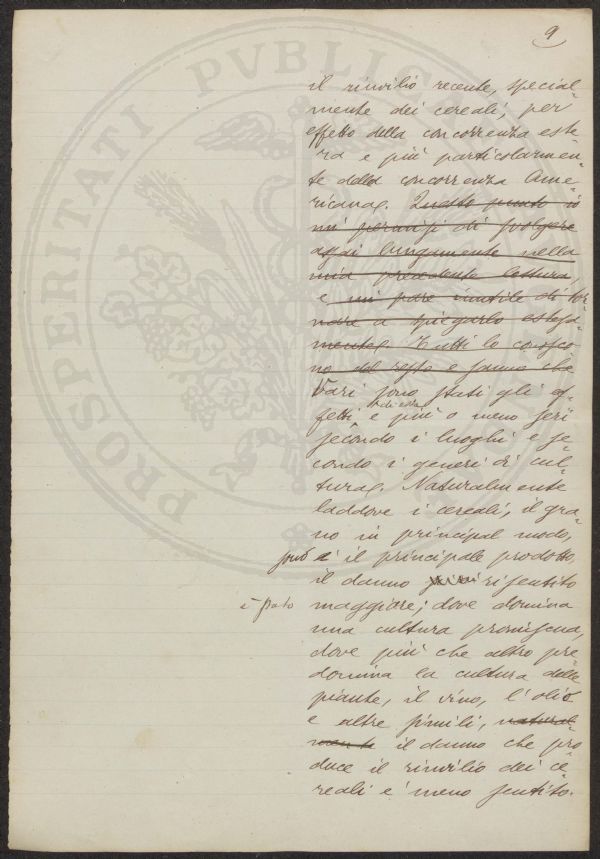 9
PROSPERITATI PVBLIC
il rinvilio recente, special-
mente dei cereali, per
effetto della concorrenza este-
ra e più particolarmen-
te della concorrenza Ame-
ricana. Questo punto io
mi permisi di svolgere
assai lungamente nella
mia precedente lettura,
e mi pare inutile di tor-
nare a spiegarlo estesa-
mente. Tutti lo conosco-
no del resto e sanno che
Vari sono stati gli ef-
fetti di esso e più o meno serî
secondo i luoghi e se-
condo i generi di cul-
tura. Naturalmente
laddove i cereali, il gra-
no in principal modo,
sono il principale prodotto,
il danno risentito
è stato maggiore; dove domina
una cultura promiscua,
dove più che altro pre-
domina la cultura delle
piante, il vino, l'olio
e altre simili, natural-
mente il danno che pro-
duce il rinvilio dei ce-
reali è meno sentito.